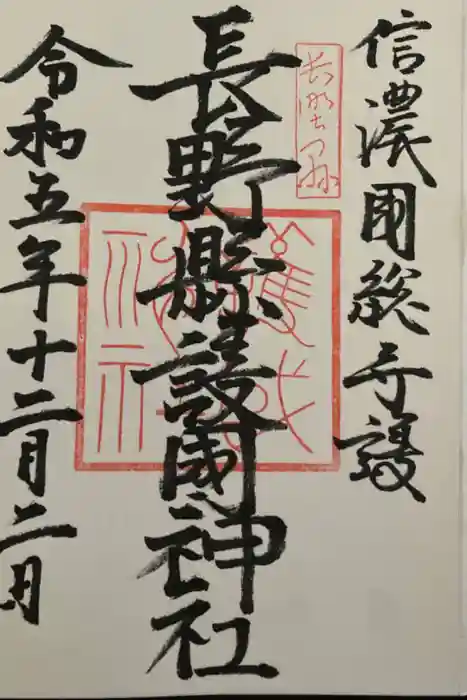 信濃國総守護
長野縣護國神社
令和五年十二月二日